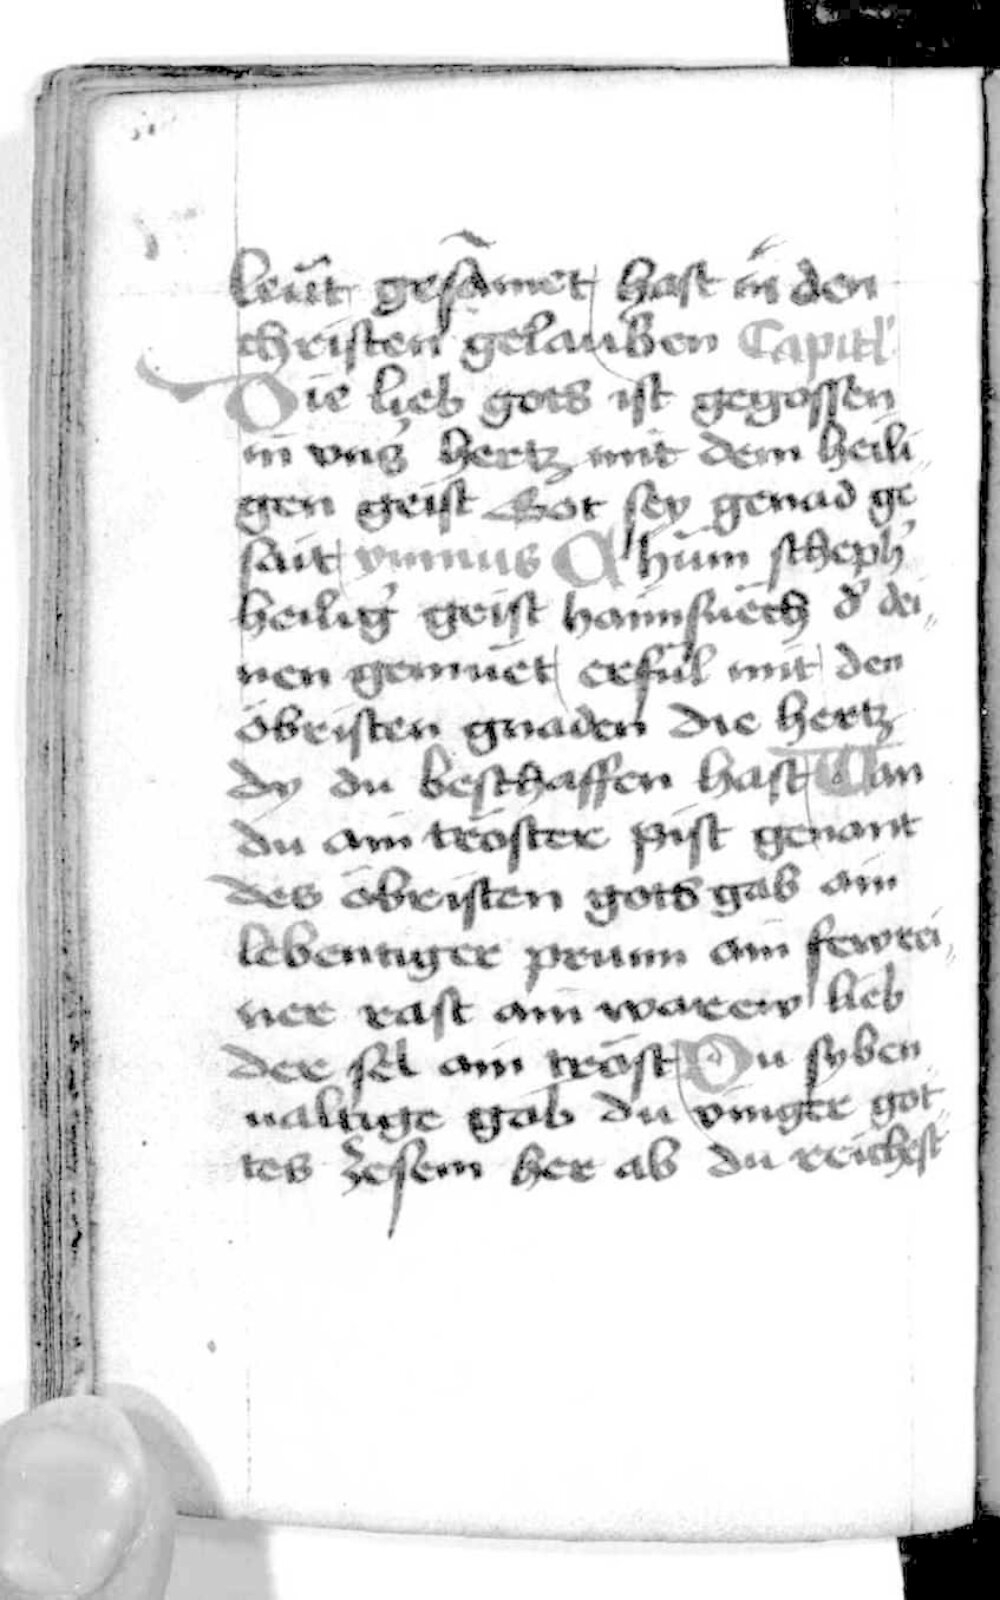 leut gesãmet hast in den
christen gelauben Capitl'
Die lieb gots ist gegossen
in vns' hertz mit dem heili„
gen geist Got sey genad ge
sait ymnus A hüm scheph'
heilig' geist haimsuech d' dei„
nen gemuet erfül mit den
öbristen gnaden die hertz
dy du beschaffen hast Wan
du ain tröster pist genant
des öbristen gots gab ain
lebentiger prunn ain fewrei„
ner rast ain waren lieb
der sel ain tröst Du syben
ualtige gab du vinger got„
tes zesem her ab du reichest